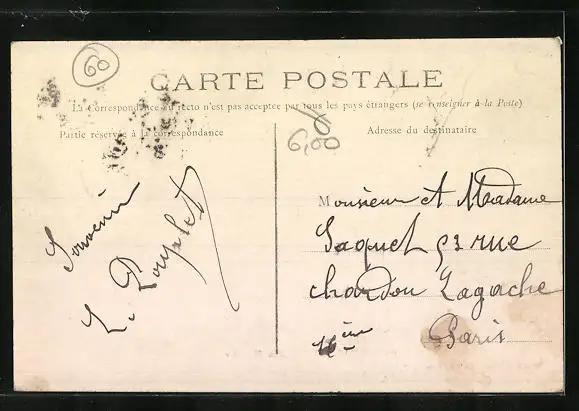 60
CARTE POSTALE
La Correspondance au recto n'est pas acceptée par tous les pays étrangers (se renseigner à la Poste)
Partie réservée à la correspondance
Adresse du destinataire
6,00
Souvenir
L. Pouplet
Monsieur et Madame
Jaquet 53 rue
chardon Lagache
16ème
Paris